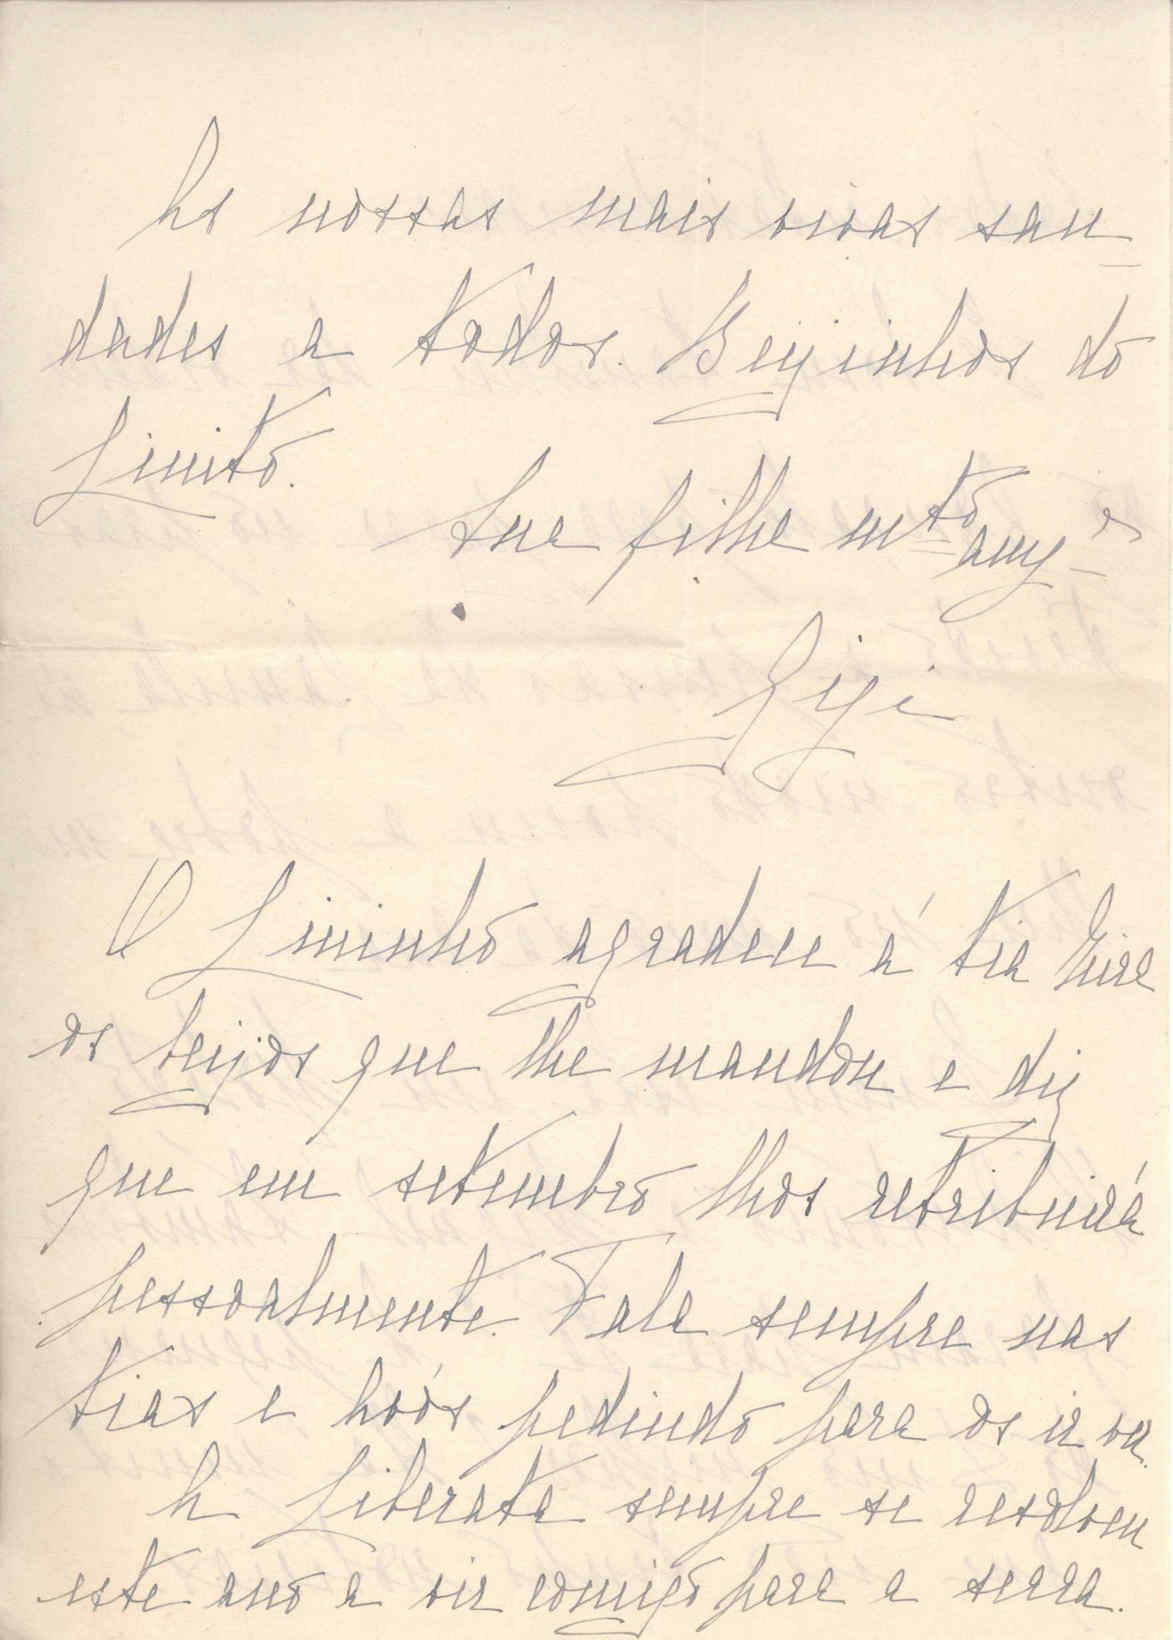 As nossas mais vivas sau-
dades a todos. Beijinhos do
Linito.
Sua filha mto amga
Gigi
O Lininho agradece á tia
os beijos que lhe mandou e diz
que em setembro lhos retribuirá
pessoalmente. Fala sempre nas
tias e Avós pedindo para os ir ver.
A Liberata sempre se resolveu
este ano a vir comigo para a serra.